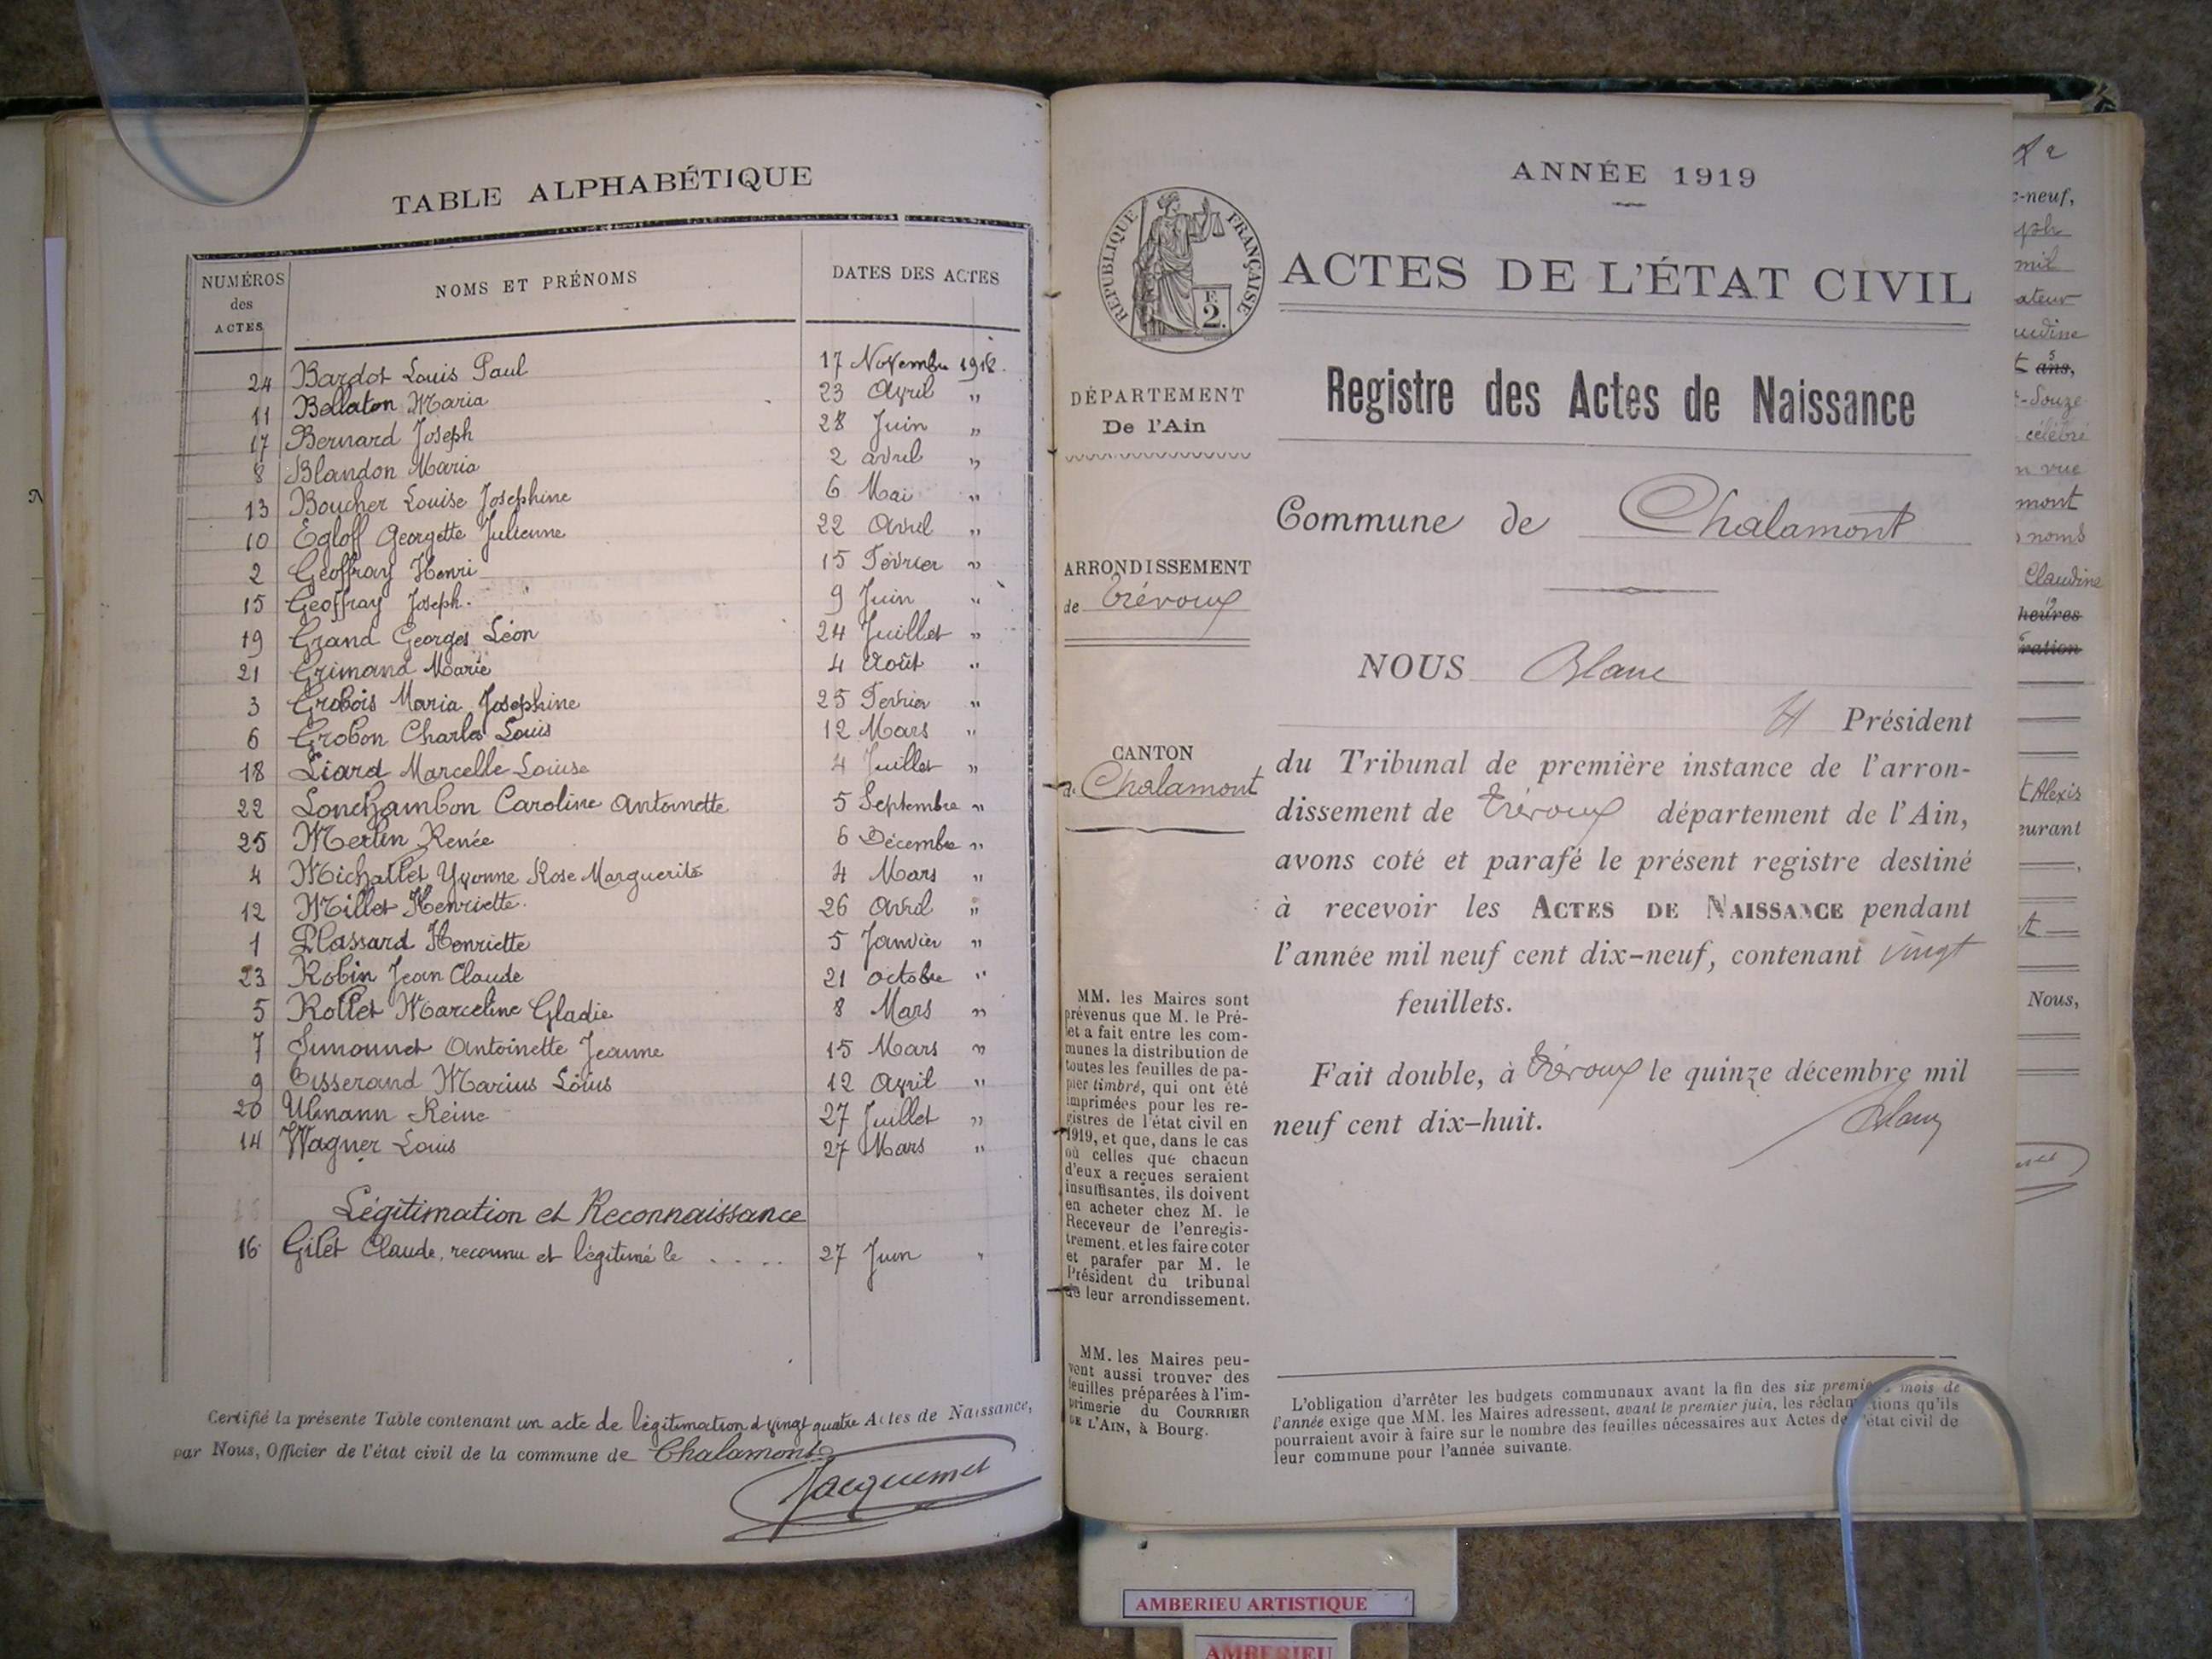 TABLE ALPHABÉTIQUE
NUMÉROS des ACTES NOMS ET PRÉNOMS DATES DES ACTES
24 Bardot Louis Paul 17 Novembre 1918.
11 Bellaton Maria 23 Avril "
17 Bernard Joseph 28 Juin "
8 Blandon Maria 2 avril "
13 Boucher Louise Josephine 6 Mai "
10 Egloff Georgette Julienne 22 Avril "
2 Geoffray Henri 15 Février "
15 Geoffray Joseph. 9 Juin "
19 Grand Georges Léon 24 Juillet "
21 Grimand Marie 4 Août "
3 Grobois Maria Josephine 25 Février "
6 Grobon Charles Louis 12 Mars "
18 Liard Marcelle Louise 4 Juillet "
22 Lonchambon Caroline Antoinette 5 Septembre "
25 Merlin Renée 6 Décembre "
4 Michallet Yvonne Rose Marguerite 4 Mars "
12 Millet Henriette. 26 Avril "
1 Plassard Henriette 5 Janvier "
23 Robin Jean Claude 21 octobre "
5 Rollet Marceline Gladie 8 Mars "
7 Simonnet Antoinette Jeanne 15 Mars "
9 Tisserand Marius Louis 12 Avril "
20 Ulmann Reine 27 Juillet "
14 Wagner Louis 27 Mars "
Légitimation et Reconnaissance
16 Gilet Claude, reconnu et légitimé le ..... 27 Juin "
Certifié la présente Table contenant un acte de légitimation et vingt quatre Actes de Naissance,
par Nous, Officier de l'état civil de la commune de Chalamont
Jacquemet
RÉPUBLIQUE FRANÇAISE
F.
2.
DÉPARTEMENT
De l'Ain
ARRONDISSEMENT
de Trévoux
CANTON
de Chalamont
MM. les Maires sont
prévenus que M. le Pré-
fet a fait entre les com-
munes la distribution de
toutes les feuilles de pa-
pier timbré, qui ont été
imprimées pour les re-
gistres de l'état civil en
1919, et que, dans le cas
où celles que chacun
d'eux a reçues seraient
insuffisantes, ils doivent
en acheter chez M. le
Receveur de l'enregis-
trement, et les faire coter
et parafer par M. le
Président du tribunal
de leur arrondissement.
MM. les Maires peu-
vent aussi trouver des
feuilles préparées à l'im-
primerie du COURRIER
DE L'AIN, à Bourg.
ANNÉE 1919
ACTES DE L'ÉTAT CIVIL
Registre des Actes de Naissance
Commune de Chalamont
NOUS Blanc
Président
du Tribunal de première instance de l'arron-
dissement de Trévoux département de l'Ain,
avons coté et parafé le présent registre destiné
à recevoir les ACTES DE NAISSANCE pendant
l'année mil neuf cent dix-neuf, contenant vingt
feuillets.
Fait double, à Trévoux le quinze décembre mil
neuf cent dix-huit.
Blanc
L'obligation d'arrêter les budgets communaux avant la fin des six premiers mois de
l'année exige que MM. les Maires adressent, avant le premier juin, les réclamations qu'ils
pourraient avoir à faire sur le nombre des feuilles nécessaires aux Actes de l'état civil de
leur commune pour l'année suivante.
-neuf,
mil
ateur
udine
ans,
célébré
n vue
mont
noms
Claudine
heures
t Alexis
eurant
Nous,
AMBERIEU ARTISTIQUE
AMBERIEU